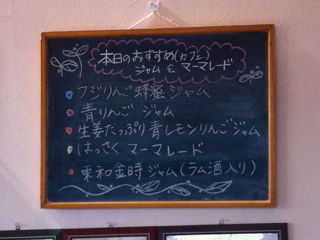 本日のおすすめ(カフェ)
ジャム & マーマレード
フジりんご蜂蜜ジャム
青りんご ジャム
生姜たっぷり青レモンりんごジャム
はっさく マーマレード
東和金時ジャム(ラム酒入り)